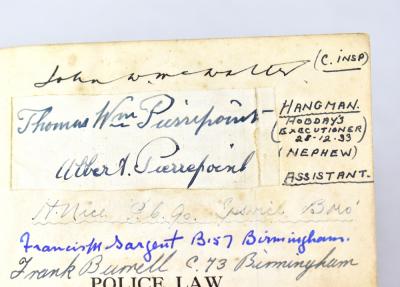 John Wm McWalter. (C. INSP)
Thomas Wm Pierrepoint - HANGMAN.
(HOBDAY'S EXECUTIONER 28-12-33
Albert Pierrepoint (NEPHEW)
ASSISTANT.
P.C. 90. Ipswich Boro'
Francis H. Sargent B.57 Birmingham.
Frank Burrell C.73 Birmingham
POLICE LAW